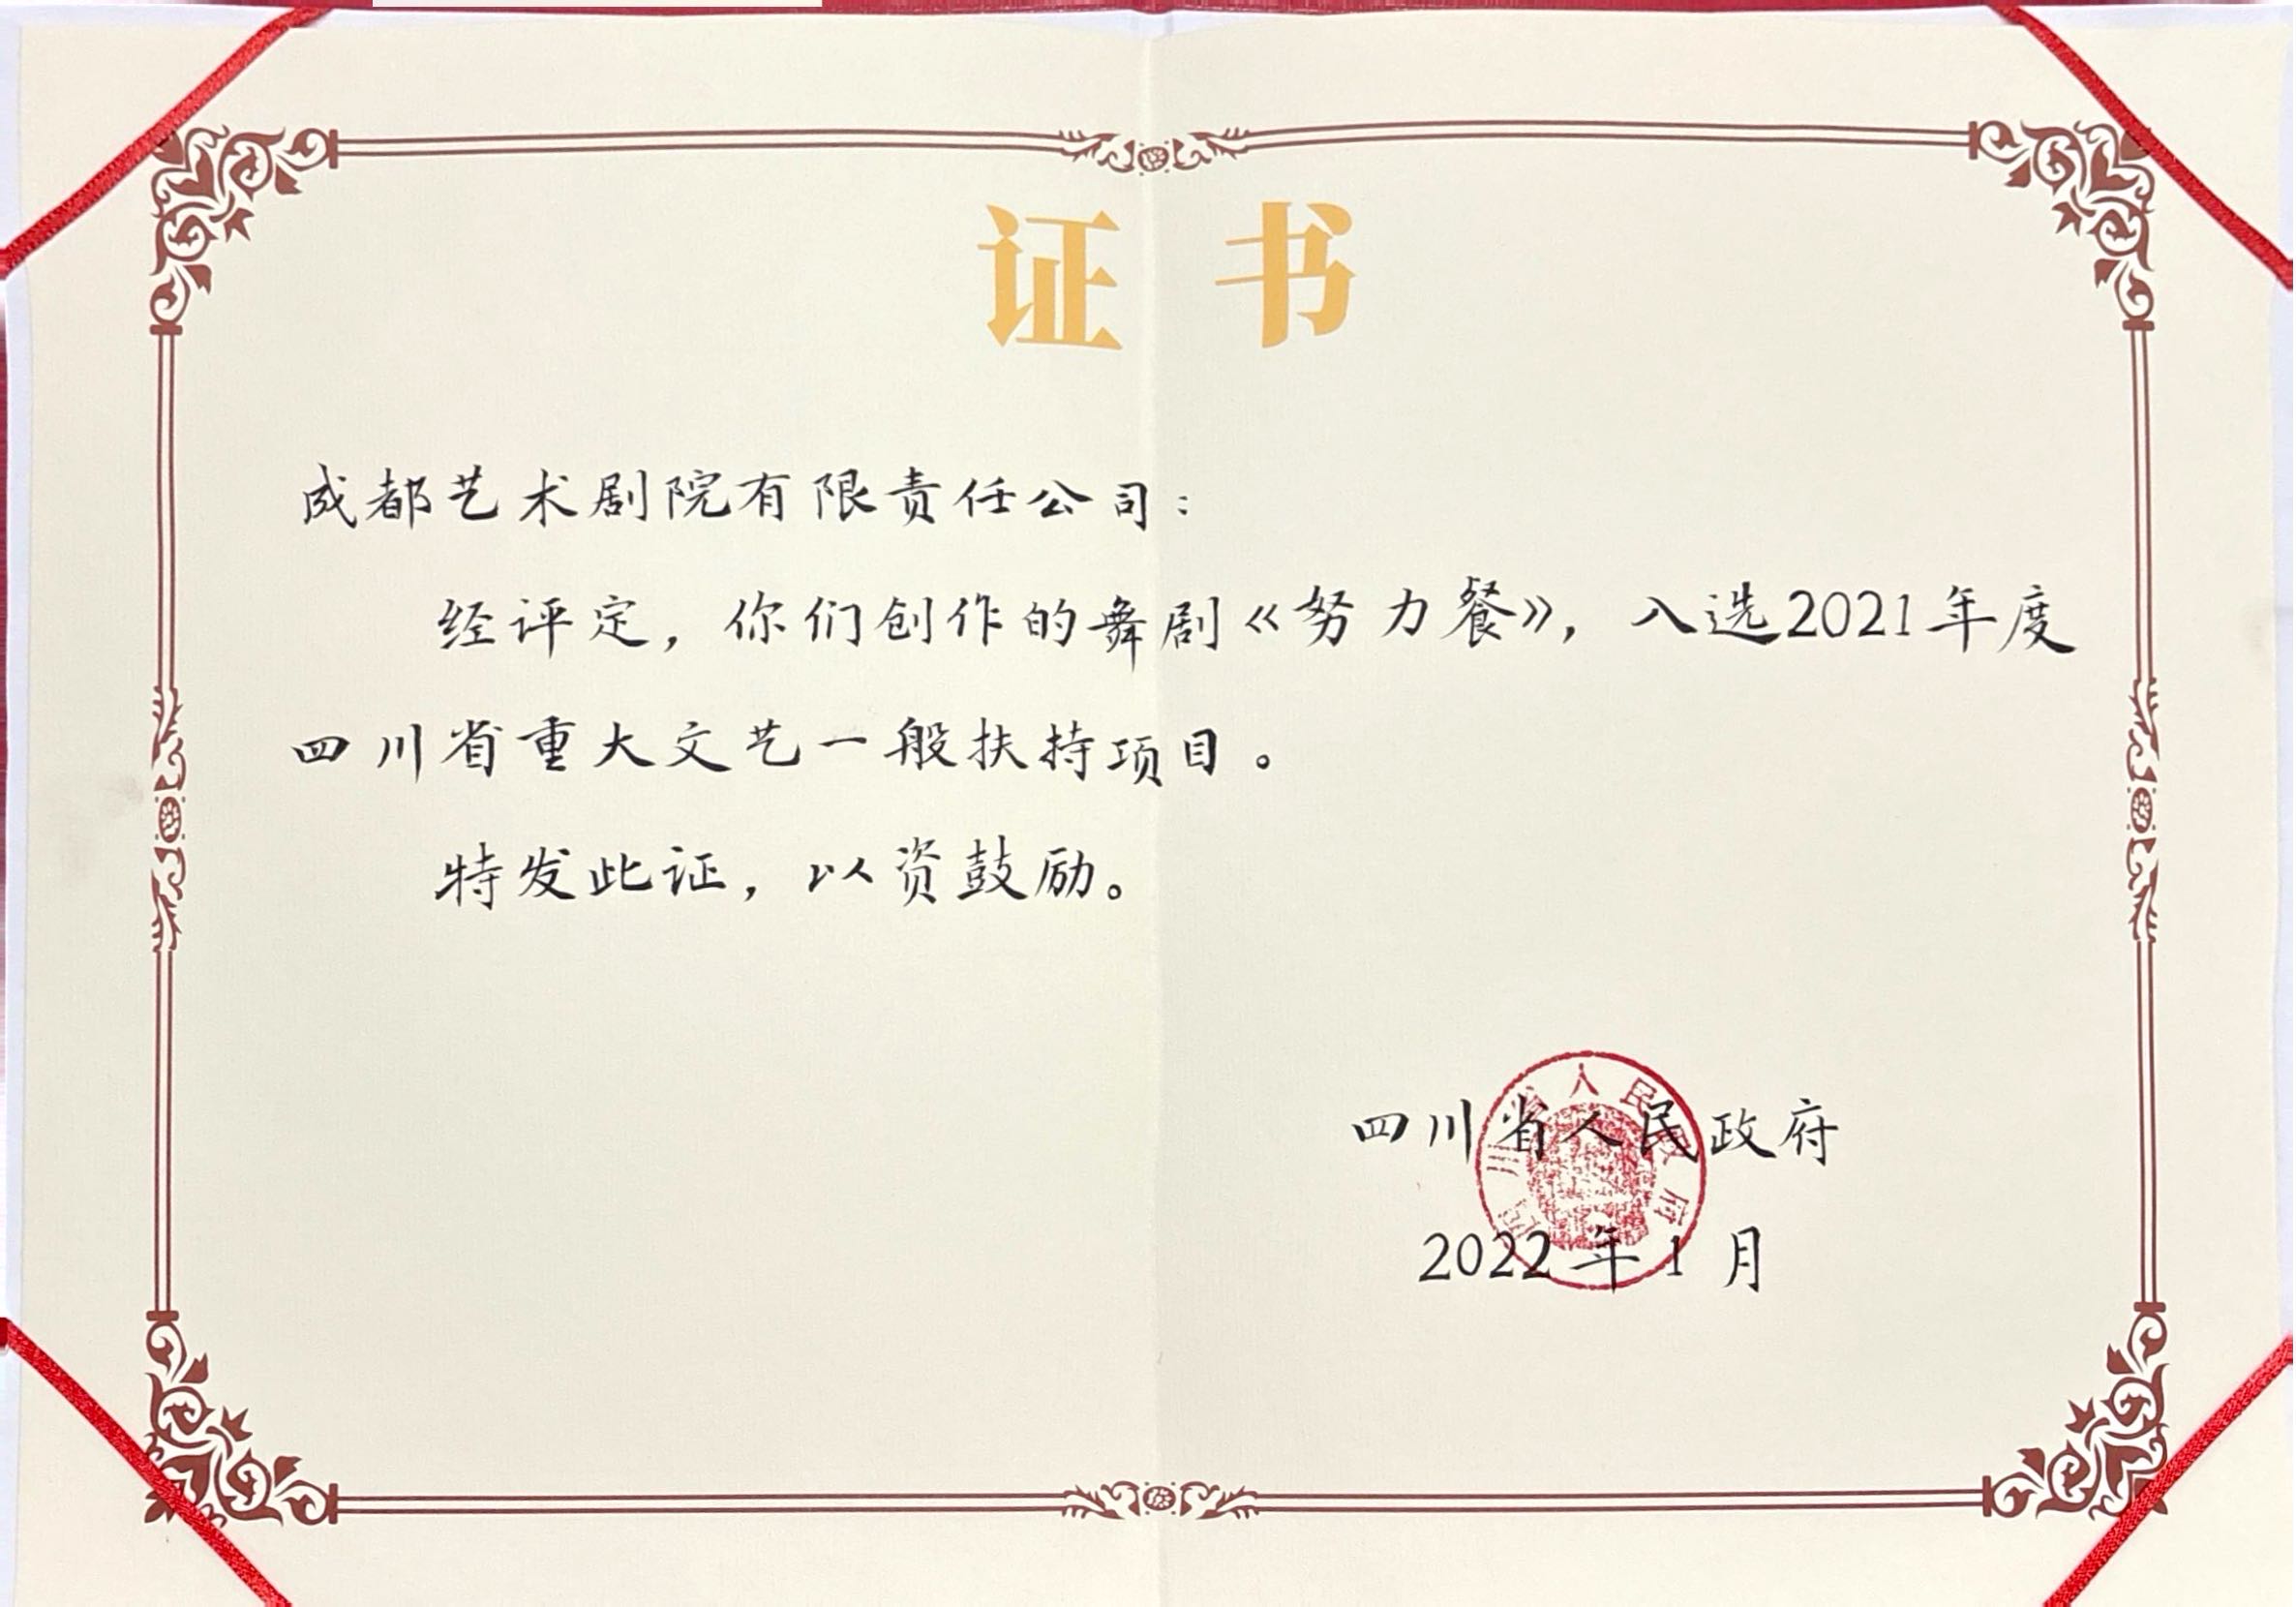 证书
成都艺术剧院有限责任公司：
经评定，你们创作的舞剧《努力餐》，入选2021年度
四川省重大文艺一般扶持项目。
特发此证，以资鼓励。
四川省人民政府
2022年1月
四川省人民政府